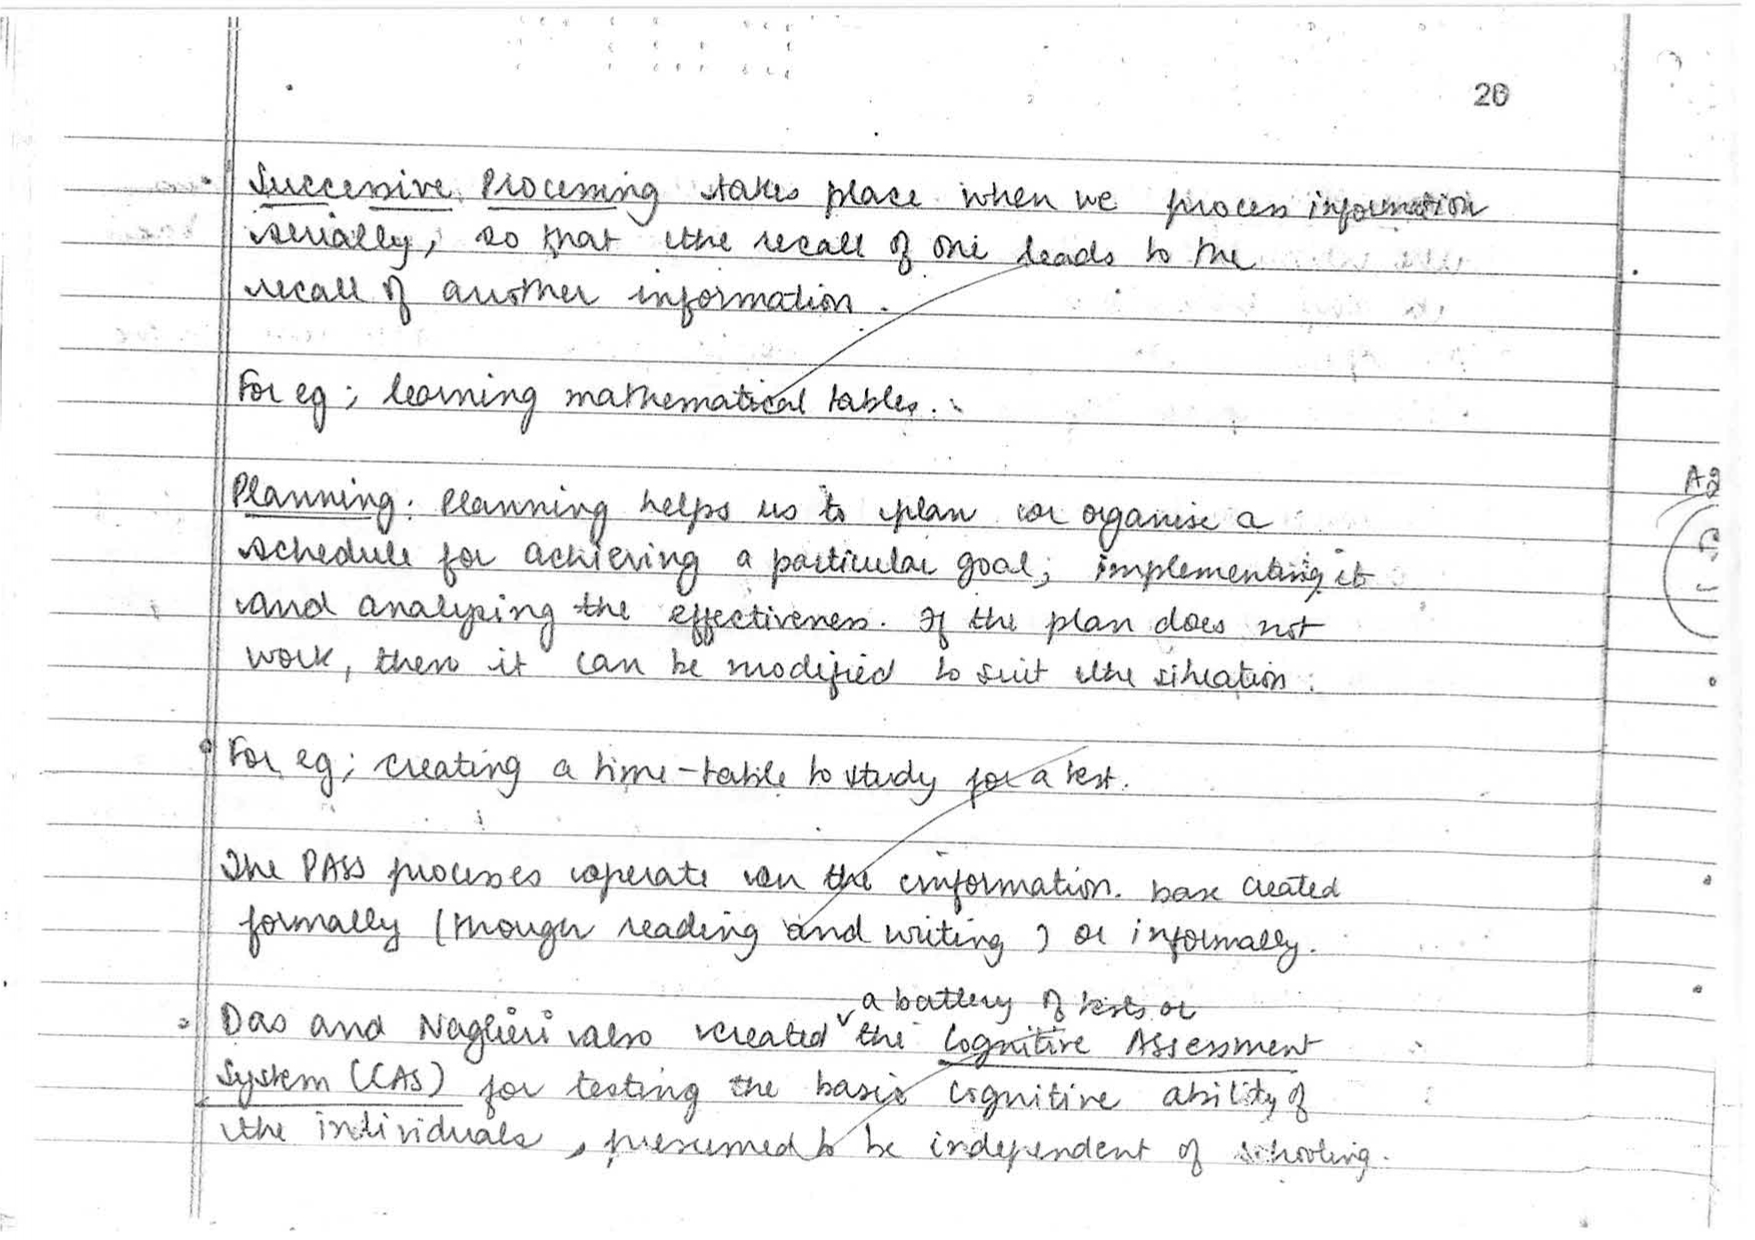 20
Successive Processing takes place when we process information
serially, so that the recall of one leads to the
recall of another information.
For eg; learning mathematical tables.
Planning: Planning helps us to plan or organise a
schedule for achieving a particular goal; implementing it
and analysing the effectiveness. If the plan does not
work, then it can be modified to suit the situation.
For eg; creating a time-table to study for a test.
The PASS processes operate on the information base created
formally (though reading and writing) or informally.
a battery of tests or
Das and Naglieri also created the Cognitive Assessment
System (CAS) for testing the basic cognitive ability of
the individuals, presumed to be independent of schooling.